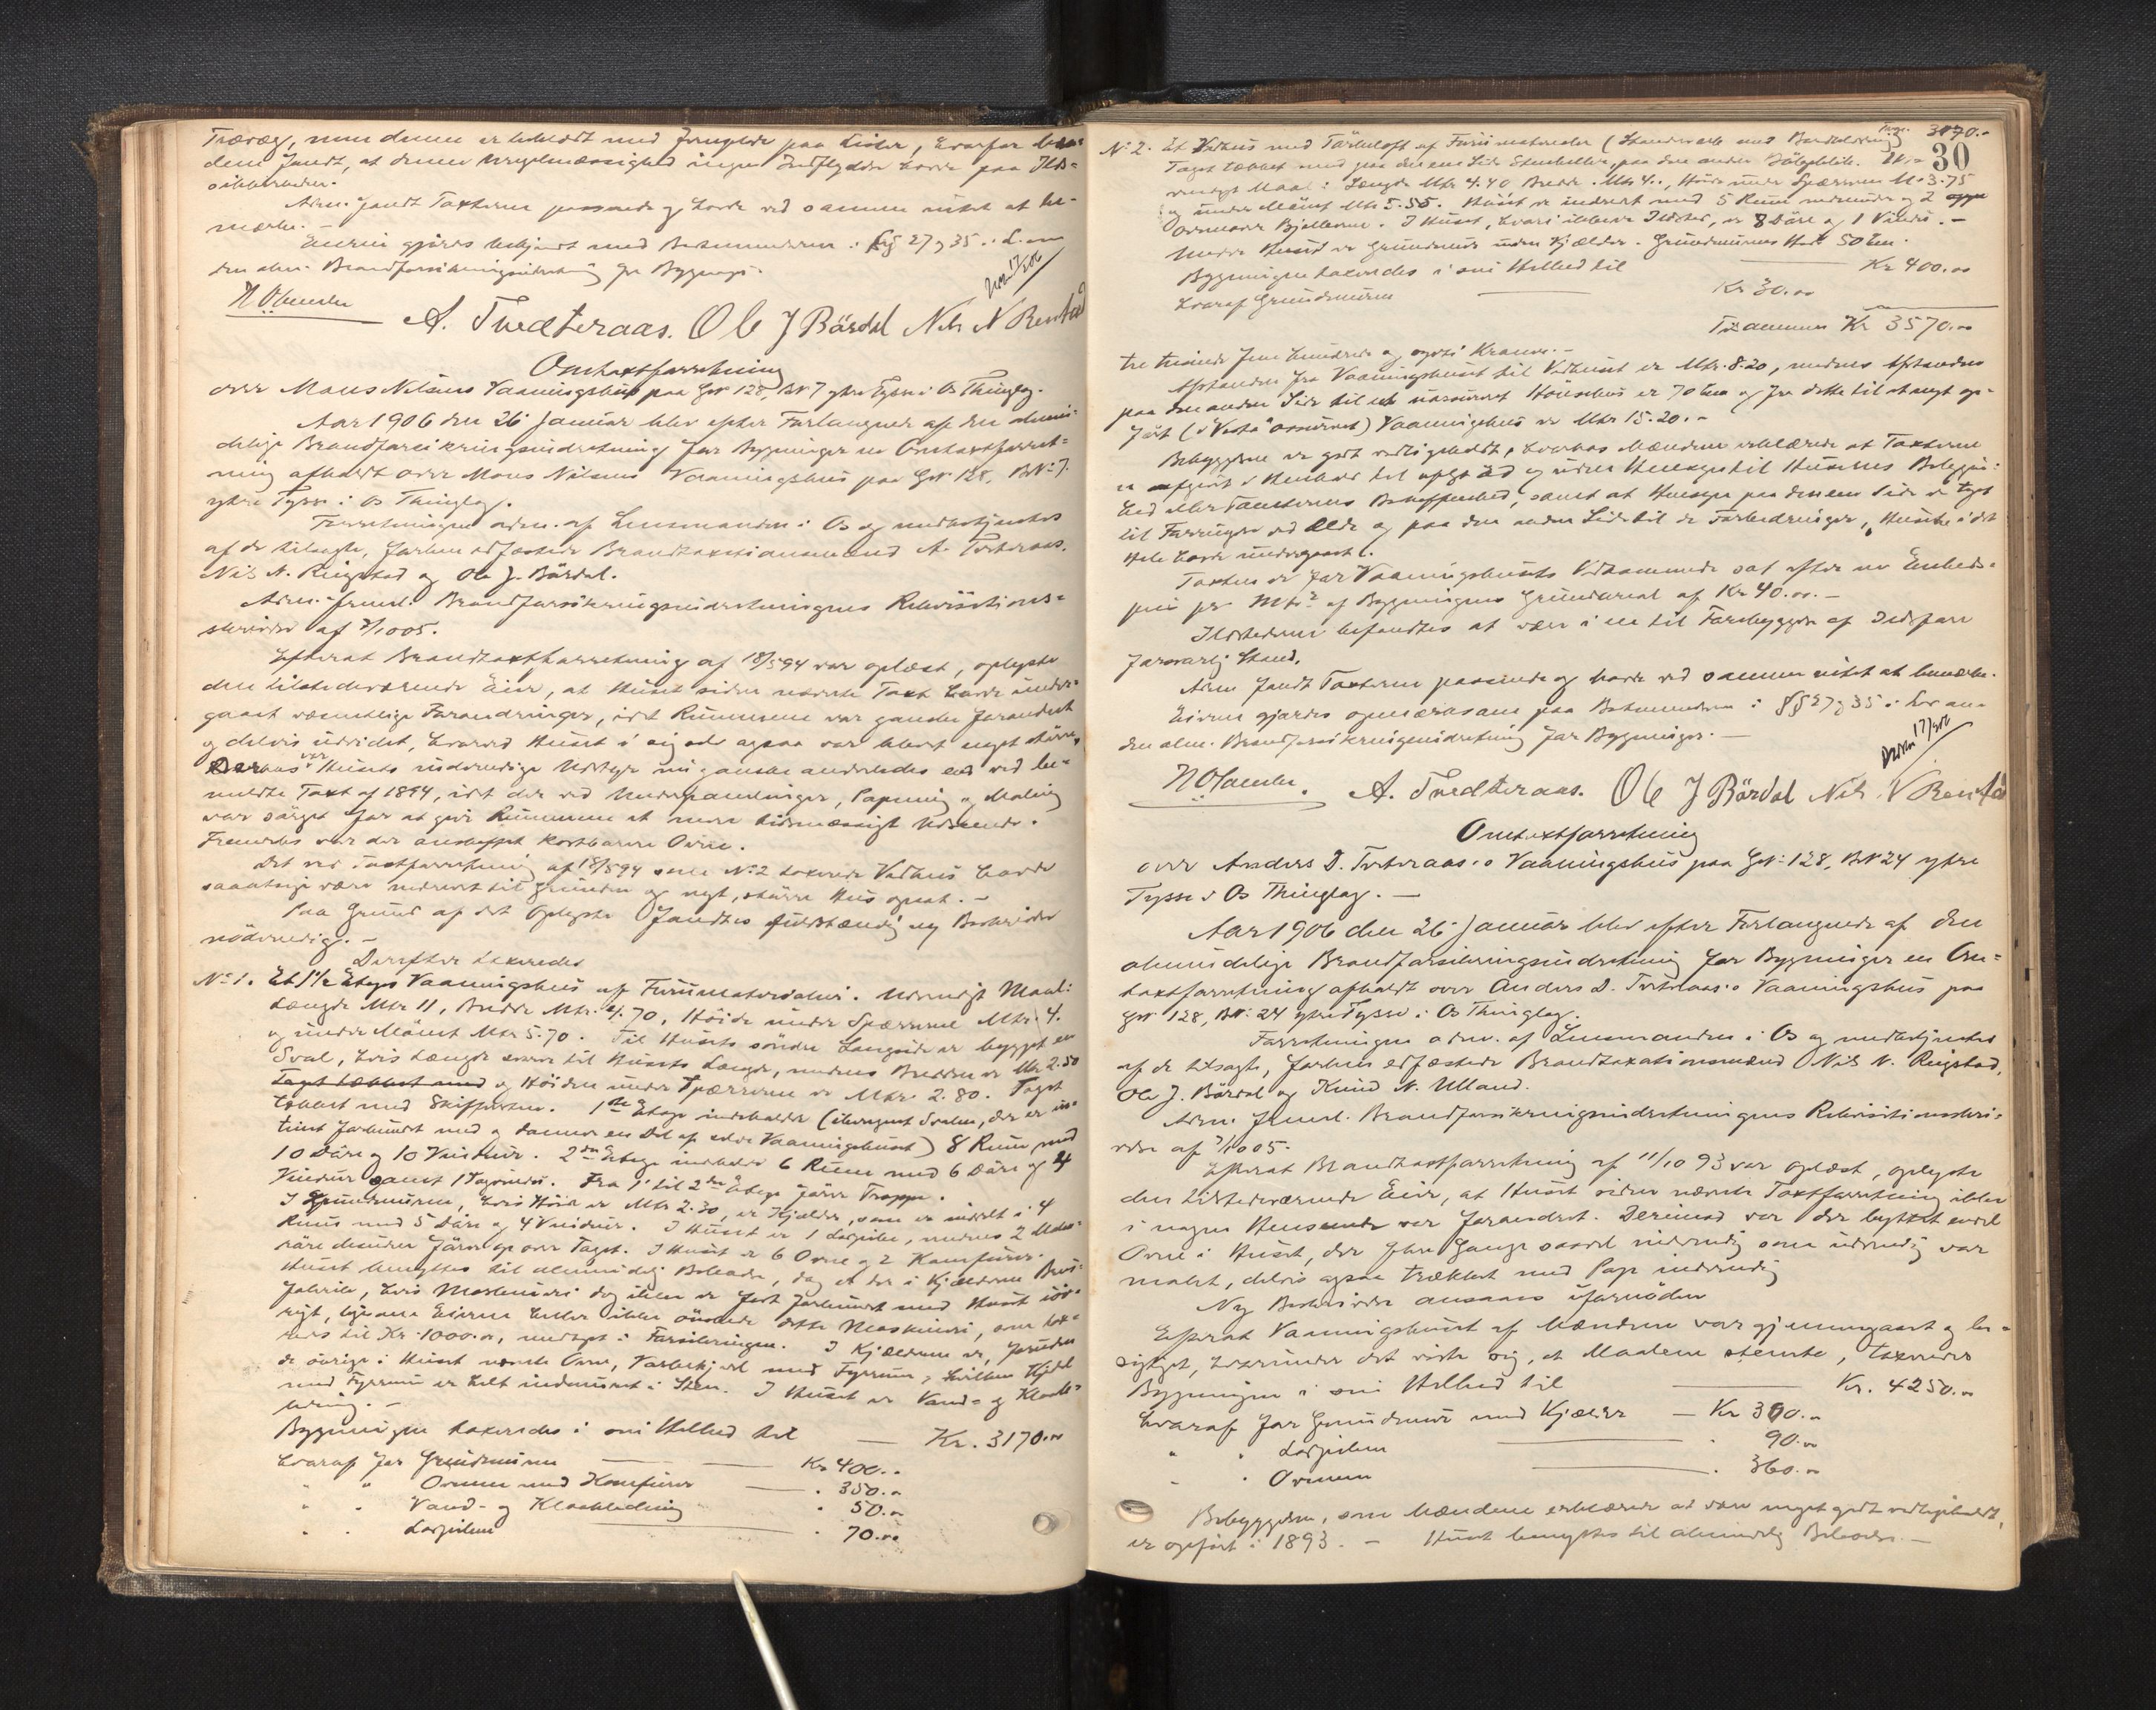 Træveg, men denne er beklædt med Jernplade paa Lister, hvorfor
dene fandt, at denne Uregelmæssighed ingen Indflydelse havde paa Ild-
sikkerheden.
Adm. fandt Taxterne passende og havde ved samme intet at be-
mærke.
Eieren gjordes bekjendt med Bestemmelserne i §§ 27 og 35 i L. om
den alm. Brandforsikringsindretning for Bygnings-
A. Tvedteraas. Ole J Bärdal Nils N
Omtaxtforretning
over Mons Nilsens Vaaningshus paa Gn 128, Bn 7 ytre Tysse i Os Thinglag.
Aar 1906 den 26 Januar blev efter Forlangende af den almin-
delige Brandforsikringsindretning for Bygninger en Omtaxtforret-
ning afholdt over Mons Nilsens Vaaningshus paa Gn 128, Bn: 7.
ytre Tysse i Os Thinglag.
Forretningen adm. af Lensmanden i Os og medbetjentes
af de tilsagte, forhen edfæstede Brandtaxtionsmænd A. Tveteraas.
Nils N. Ringstad og Ole J. Bärdal.
Adm. freml. Brandforsikringsindretningens Rekvisitions-
skrivelse af 7/10 05.
Efterat Brandtaxtforretning af 18/5 94 var oplæst, oplyste
den tilstedeværende Eier, at Huset siden nævnte Taxt havde under-
gaaet væsentlige Forandringer, idet Rummene var ganske forandret
og delvis udvidet, hvorved Huset i sig selv ogsaa var blevet noget større,
Derhos var Husets indvendige Udstyr nu ganske anderledes end ved be-
meldte Taxt af 1894, idet der ved Underpanelinger, Papning og Maling
var sørget for at give Rummene et mere tidsmæssigt Udseende.
Fremdeles var der anskaffet kostbarere Ovne.
Det ved Taxtforretning af 18/5 94 som No 2 taxerede Vedhus havde
saaatsige være nedrevet til Grunden og nyt, større Hus opsat. -
Paa Grund af det Oplyste fandtes fuldstændig ny Beskrivelse
nødvendig. -
Derefter taxeredes
No 1. Et 1½ Etages Vaaningshus af Furumaterialier. Udvendigt Maal:
Længde Mtr 11, Bredde Mtr. 4.70, Höide under Spærrene Mtr. 4.
og under Mönet Mtr 5.70. Til Husets söndre Langside er bygget en
Sval, hvis Længde svarer til Husets Længde, medens Bredden er Mtr 2.50
Taget tækket med og Höiden under Spærrene er Mtr 2.80. Taget
tækket med Skifersten. 1ste Etage indeholder (iberegnet Svalen, der er in-
timt forbundet med og danner en Del af selve Vaaningshuset) 8 Rum med
10 Döre og 10 Vinduer. 2den Etage indeholder 6 Rum med 6 Döre og 4
Vinduer samt 1 Tagvindu. Fra 1' til 2den Etage förer Trappe.
I Grundmuren, hvis Höide er Mtr 2.30, er Kjælder, som er inddelt i 4
Rum med 5 Döre og 4 Vinduer. I Huset er 1 Ladpibe, medens 2
före desuden op over Taget. I Huset er 6 Ovne og 2 Komfurer.
Huset benyttes til almindelig Beboelse, dog at der i Kjælderen
fabrik, hvis Maskineri dog ikke er fast forbundet med Huset iöv-
rigt, ligesom Eieren heller ikke önskede dette Maskineri, som tax-
eres til Kr. 1000.00, medtaget i Forsikringen. I Kjælderen er, foruden
de övrige i Huset nævnte Ovne, med Fyrrum, hvilken Kjedel
med Fyrrum er helt indmuret i Sten. I Huset er Vand- og Kloak-
ledning. -
Bygningen taxeredes i sin Helhed til — Kr. 3170.00
hvoraf for Grundmuren — Kr 400..
" " Ovnene med Komfurer — . 350.00
" . Vand- og Kloakledning . 50.00
" . Ladpiben — . 70.00
Trsp. 3170.-
30
No 2. Et Vedhus med Törkeloft af Furumaterialer (Standverk med Bordklædning)
Taget tækket med paa den ene Side Skiferheller, paa den anden Bölgeblik. Ud-
vendigt Maal: Længde Mtr 4.40 Bredde Mtr 4.., Höide under Spærrene M. 3.75
og under Mönet Mtr 5.55. Huset er indredet med 5 Rum nedenunder og 2
ovenover Bjelkerne. I Huset, hvori ikke er Ildsted, er 8 Döre og 1 Vindu. -
Under Huset er Grundmur uden Kjælder. Grundmurens Höide 50 Cm.
Bygningen taxeredes i sin Helhed til — Kr 400.00
hvoraf Grundmuren — Kr 30.00
Tilsammen Kr 3570.00
tre tusinde fem hundrede og sytti Kroner. -
Afstanden fra Vaaningshuset til Vedhuset er Mtr. 8.20, medens Afstanden
paa den anden Side til et uassureret Hönsehus er 70 Cm og fra dette til et nyt op-
fört (i "Vesta" assureret) Vaaningshus er Mtr 15.20. -
Bebyggelsen er godt vedligeholdt, hvorhos Mændene erklærede at Taxterne
er afgivet i Henhold til afgt. Ed og uden Hensyn til Husenes Beliggen-
hed eller Tomternes Beskaffenhed, samt at Hensyn paa den ene Side er taget
til Forringelse ved Ælde og paa den anden Side til de Forbedringer, Husene i det
Hele havde undergaaet.
Taxten er for Vaaningshusets Vedkommende sat efter en Enheds-
pris pr Mtr² af Bygningens Grundareal af Kr 40.00. -
Ildstederne befandtes at være i en til Forebyggelse af Ildsfare
forsvarlig Stand.
Adm fandt Taxterne passende og havde ved samme intet at bemærke.
Eieren gjordes opmærksom paa Bestemmelserne i §§ 27 og 35 i Lov om
den alm. Brandforsikringsindretning for Bygninger. -
A. Tvedteraas. Ole J Bärdal Nils N
Omtaxtforretning
over Anders D. Tveteraas's Vaaningshus paa Gn: 128, Bn 24 ytre
Tysse i Os Thinglag. -
Aar 1906 den 26 Januar blev efter Forlangende af den
almindelige Brandforsikringsindretning for Bygninger en Om-
taxtforretning afholdt over Anders D. Tveteraas's Vaaningshus paa
Gn: 128, Bn: 24 ytre Tysse i Os Thinglag.
Forretningen adm. af Lensmanden i Os og medbetjentes
af de tilsagte, forhen edfæstede Brandtaxationsmænd Nils N. Ringstad,
Ole J. Bärdal og Knud N. Ulland.
Adm. freml. Brandforsikringsindretningens Rekvisitionsskri-
velse af 7/10 05.
Efterat Brandtaxtforretning af 11/10 93 var oplæst, oplyste
den tilstedeværende Eier, at Huset siden nævnte Taxtforretning ikke
i nogen Henseende var forandret. Derimod var der byttet endel
Ovne i Huset, der Gange saavel indvendig som udvendig var
malet, delvis ogsaa trækket med Pap indvendig
Ny Beskrivelse ansaaes ufornöden
Efterat Vaaningshuset af Mændene var gjennemgaaet og be-
sigtiget, hvorunder det viste sig, at Maalene stemte, taxeredes
Bygningen i sin Helhed til — Kr. 4250.00
hvoraf for Grundmur med Kjælder — Kr 300.00
" " Ladpiben — . 90.00
" . Ovnene — . 360.00
Bebyggelsen, som Mændene erklærede at være meget godt vedligeholdt,
er opfört i 1893. - Huset benyttes til almindelig Beboelse. -